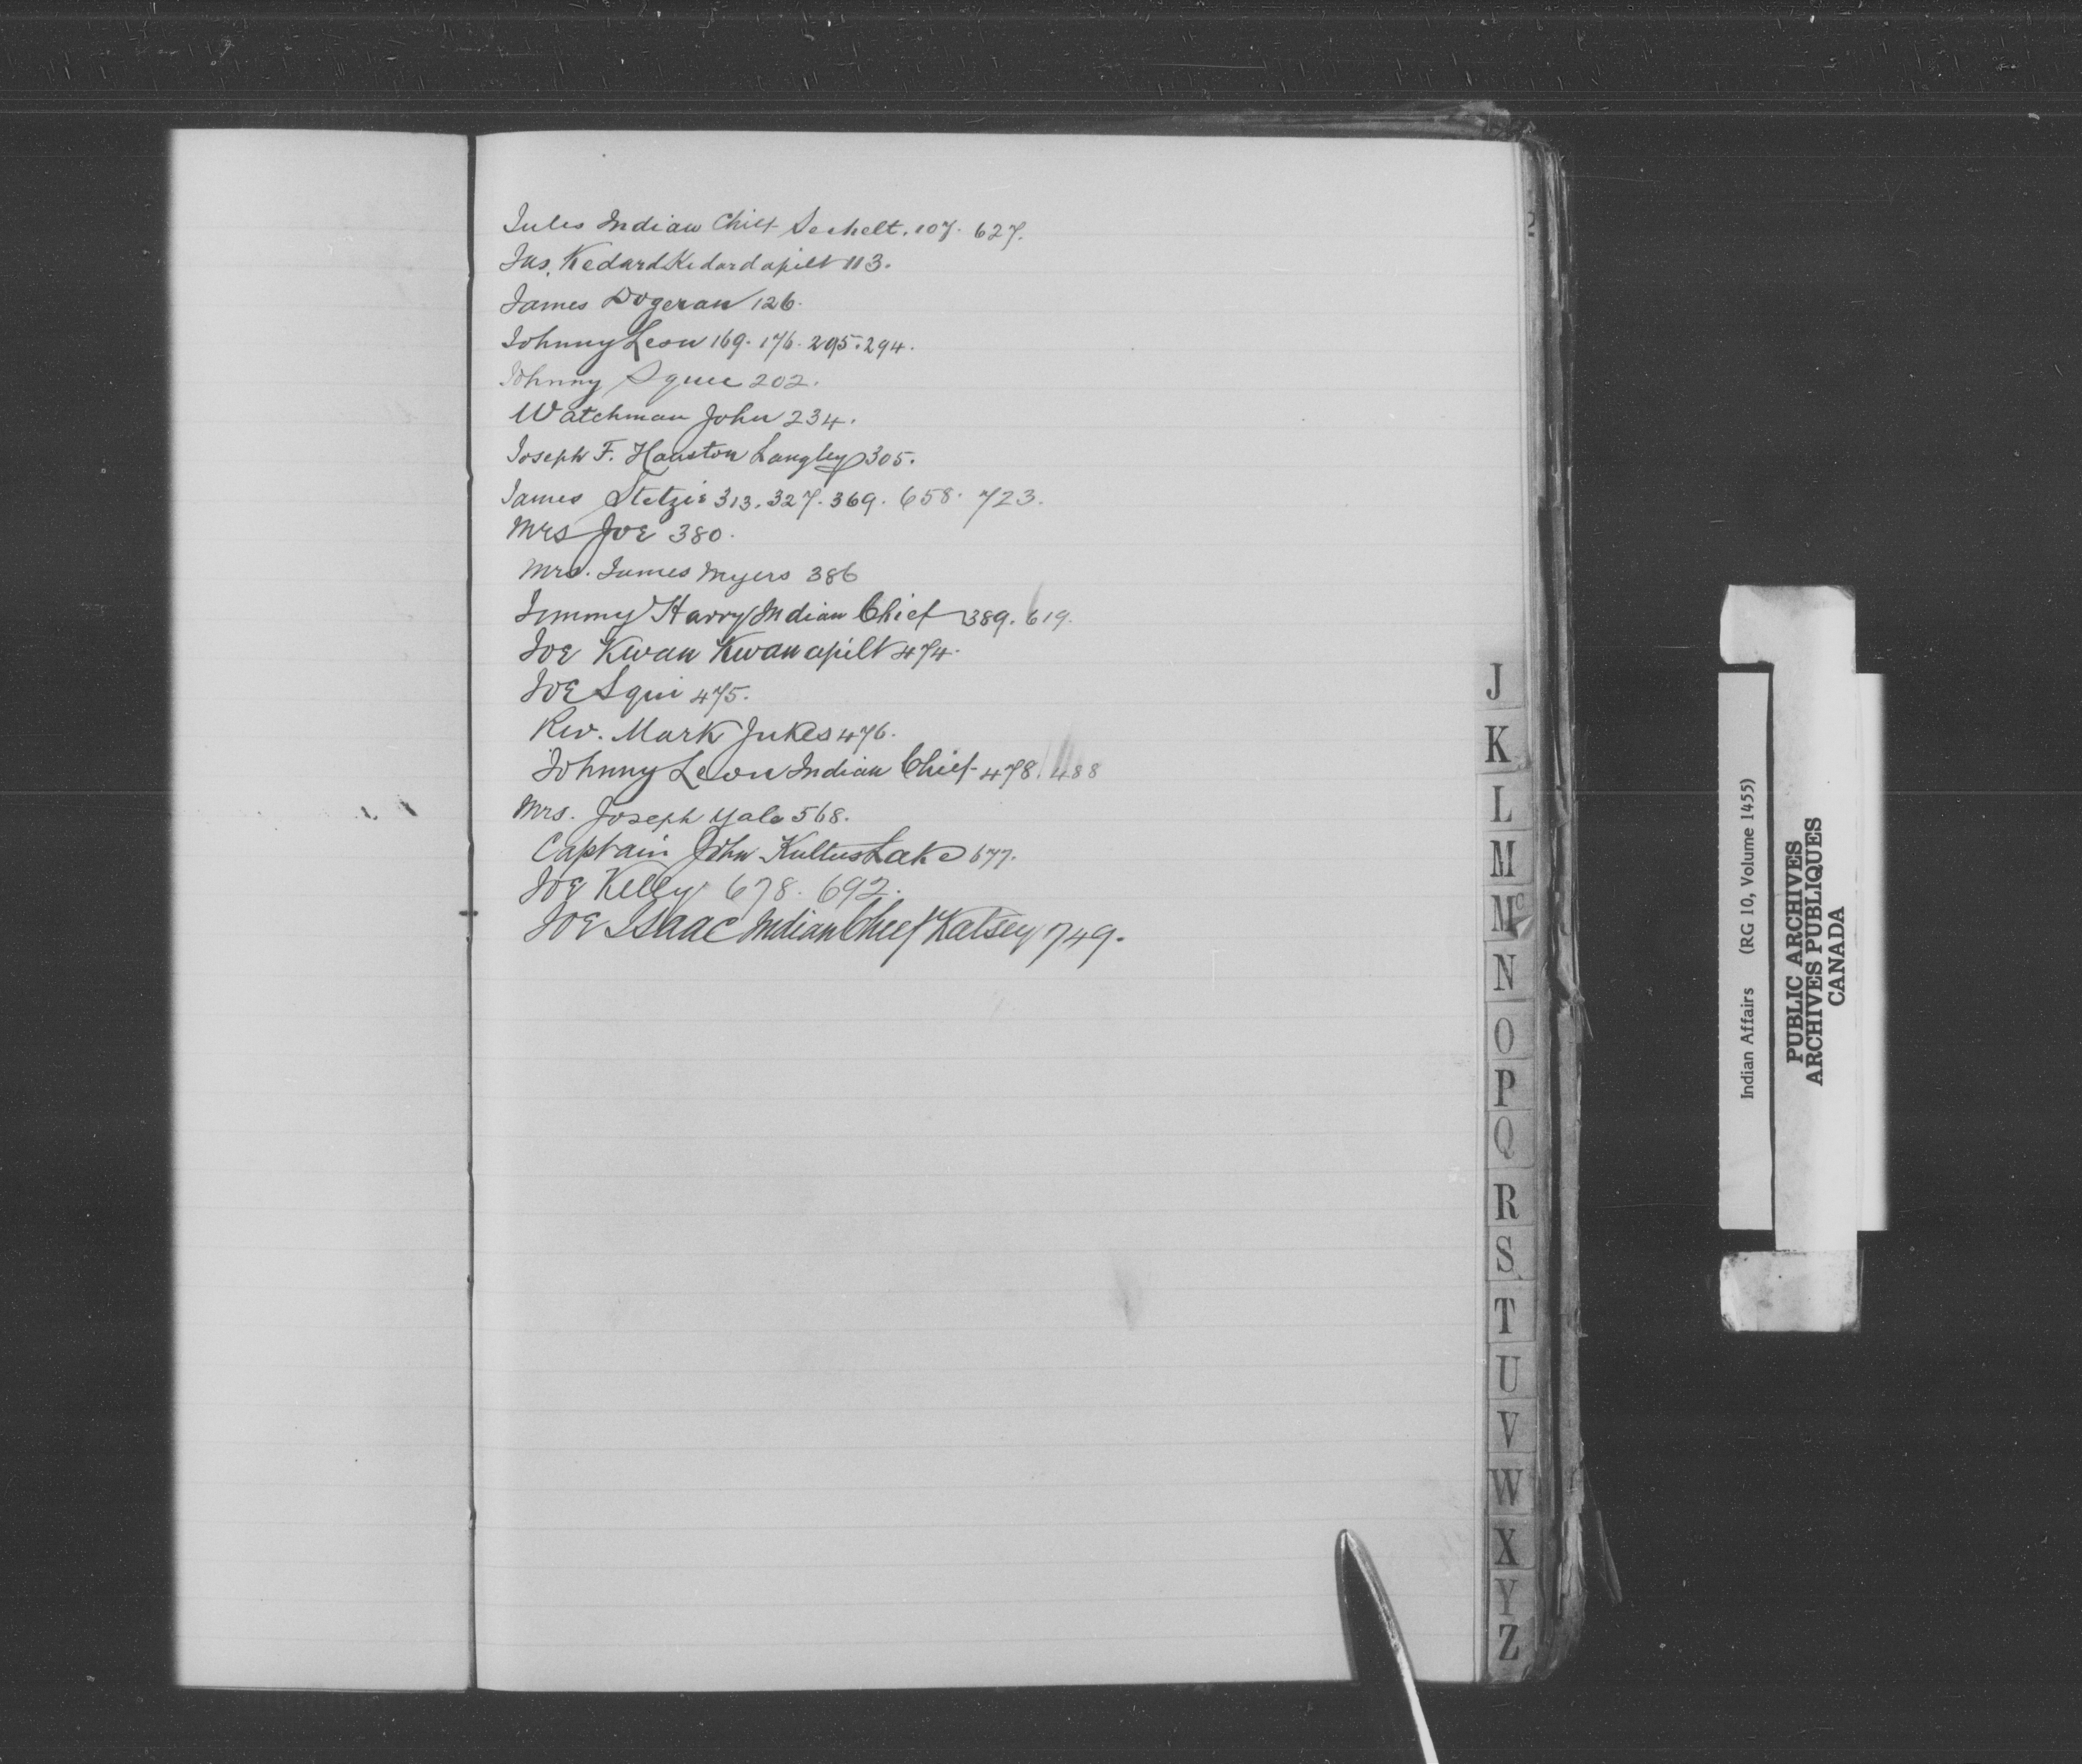 Jules Indian Chief Sechelt. 107. 627.
Jas. Kedard Kedardapilt 113.
James Dogeran 126.
Johnny Leon 169. 176. 205. 294.
Johnny Squee 202.
Watchman John 234.
Joseph F. Houston Langley 305.
James Stetzie 313. 327. 369. 658. 723.
Mrs Joe 380.
Mrs. James Myers 386
Jimmy Harry Indian Chief 389. 619.
Joe Kwan Kwanapilt 474.
Joe Squi 475.
Rev. Mark Jukes 476.
Johnny Leon Indian Chief 478. 488
Mrs. Joseph Yale 568.
Captain John Kultus Lake 677.
Joe Kelly 678. 692.
Joe Isaac Indian Chief Katsey 749.
J
K
L
M
Mc
N
O
P
Q
R
S
T
U
V
W
X
Y
Z
Indian Affairs (RG 10, Volume 1455)
PUBLIC ARCHIVES
ARCHIVES PUBLIQUES
CANADA